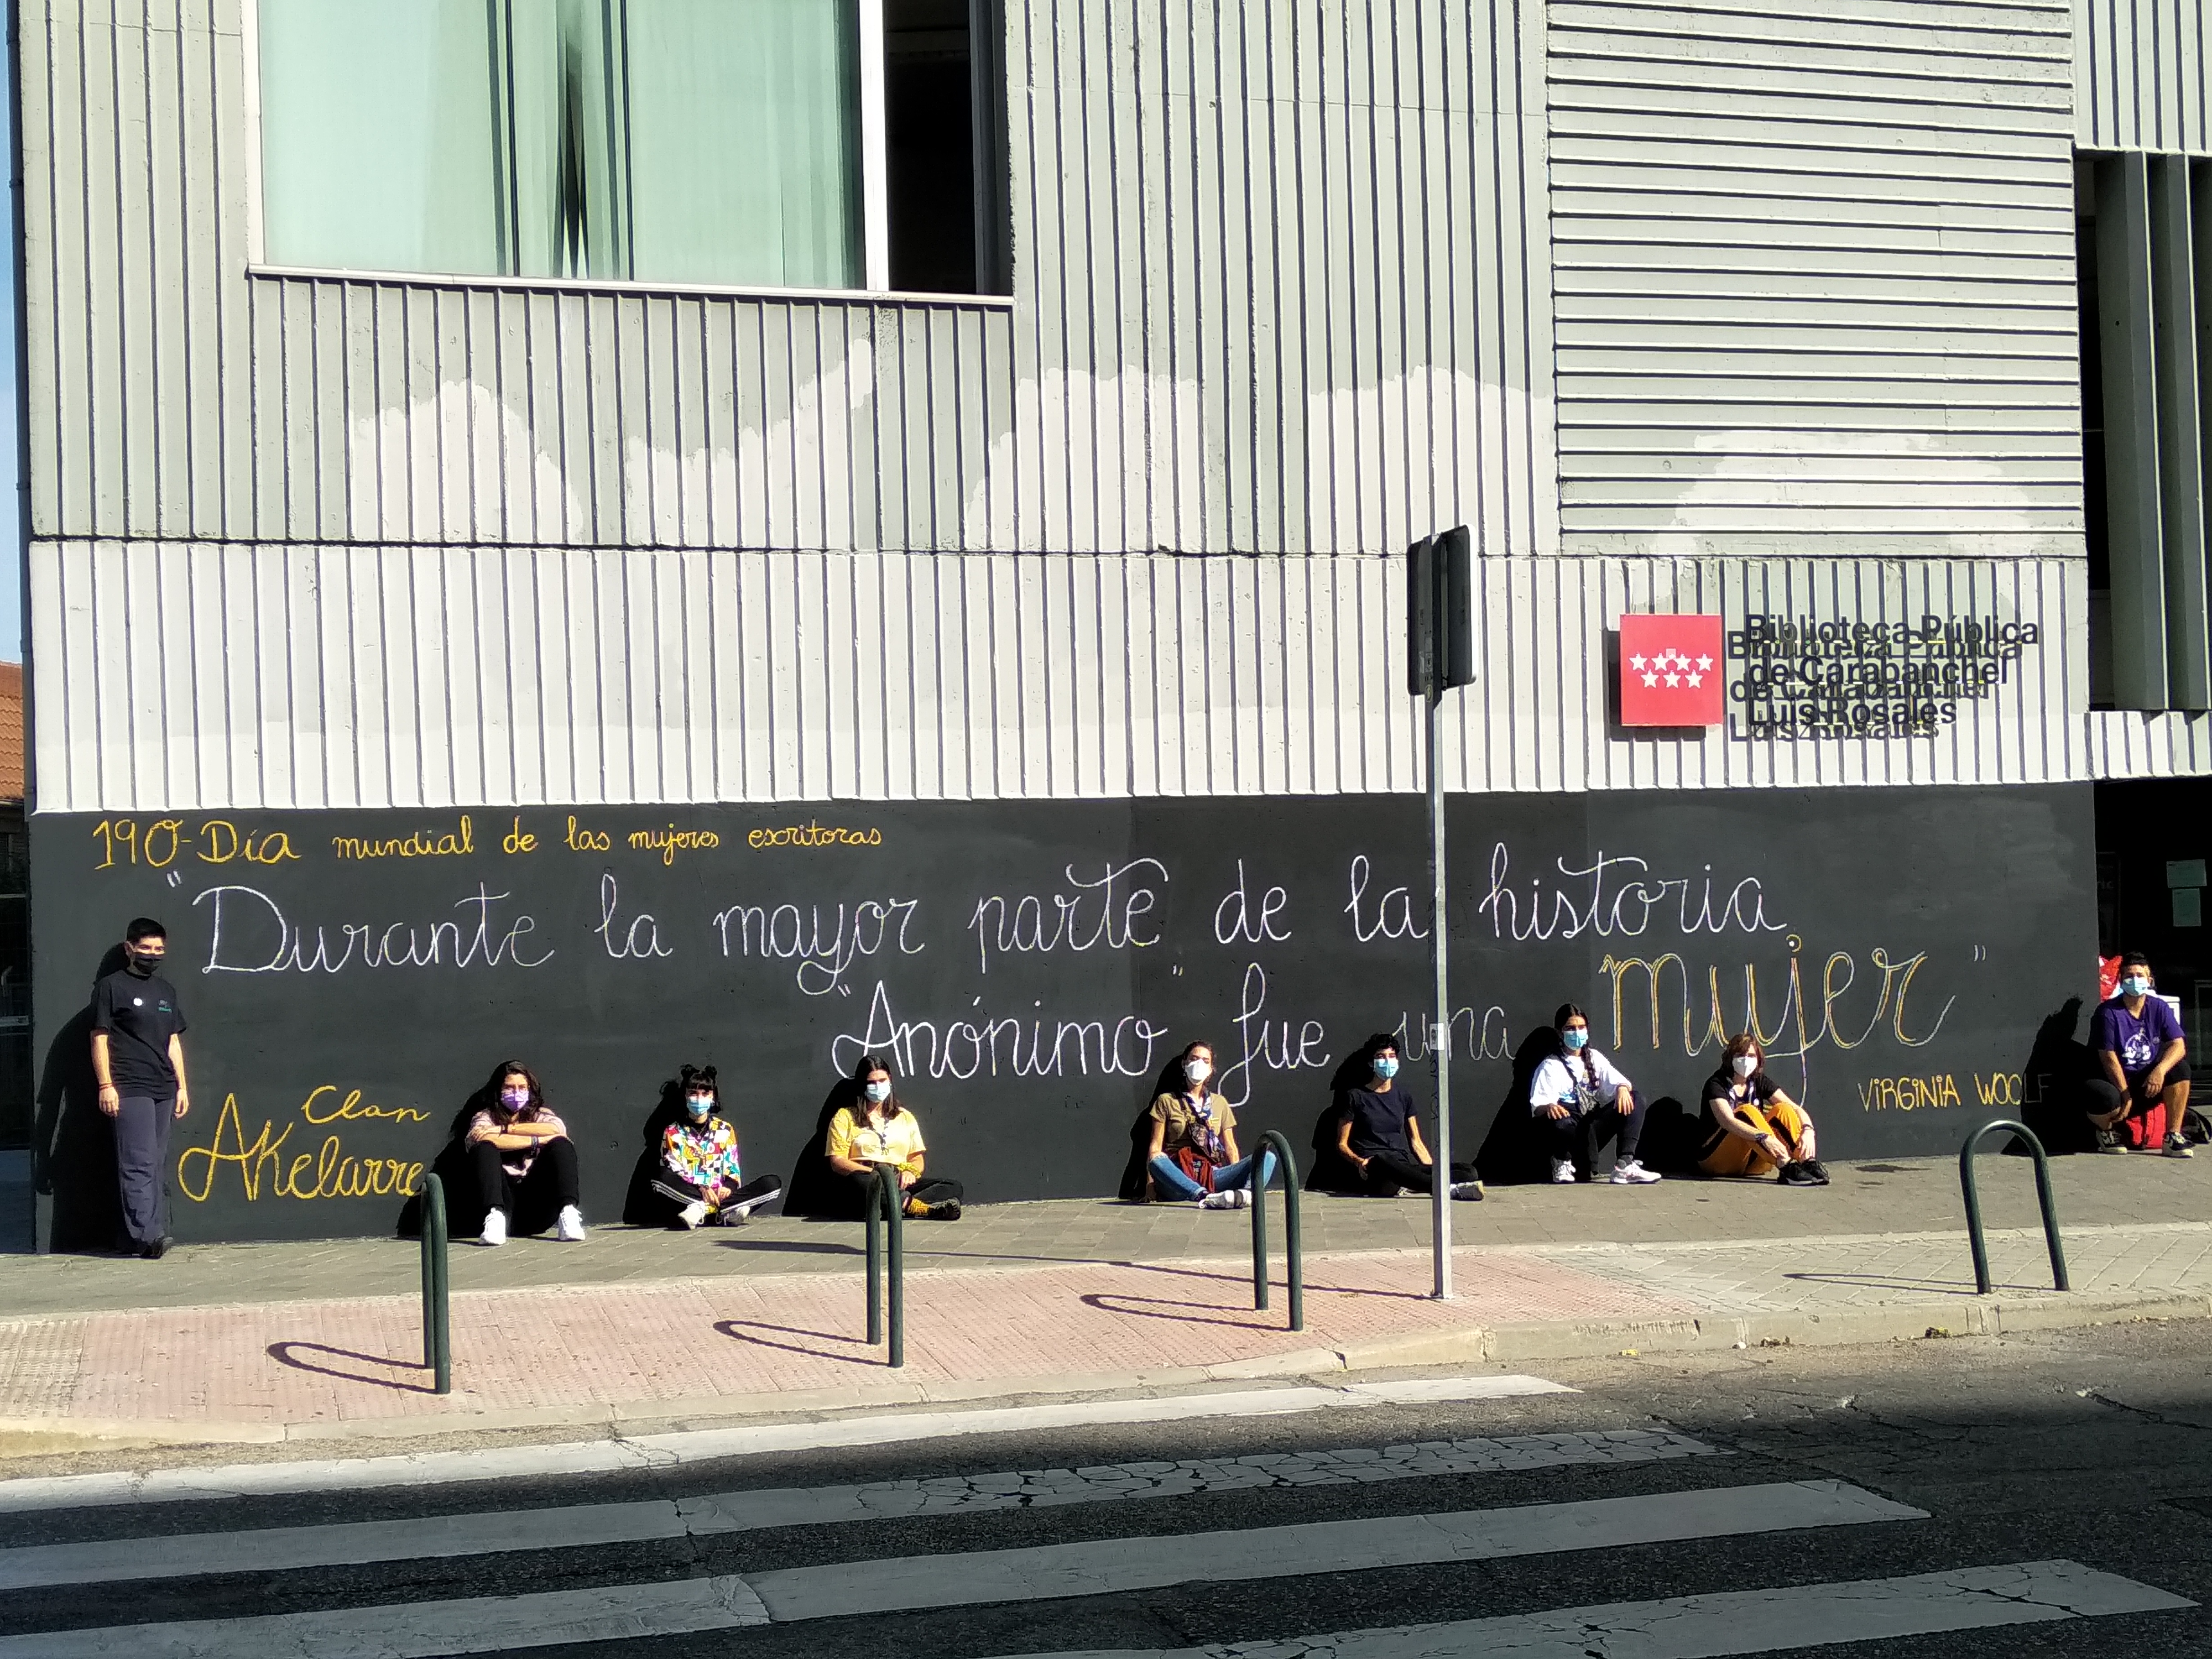 Biblioteca Pública
de Carabanchel
Luis Rosales
190-Día mundial de las mujeres escritoras
"Durante la mayor parte de la historia
"Anónimo" fue una mujer"
VIRGINIA WOOLF
Clan
AKelarre